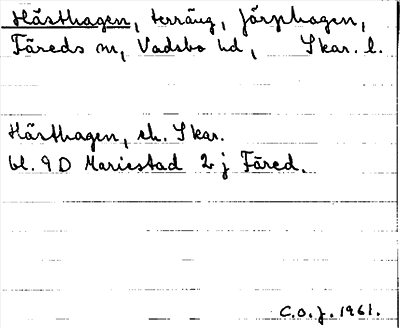 Hästhagen, terräng, Järphagen,
Färeds sn, Vadsbo hd, Skar. l.
Hästhagen, ek. Skar.
bl. 9 D Mariestad 2 j Färed.
C.O.J. 1961.